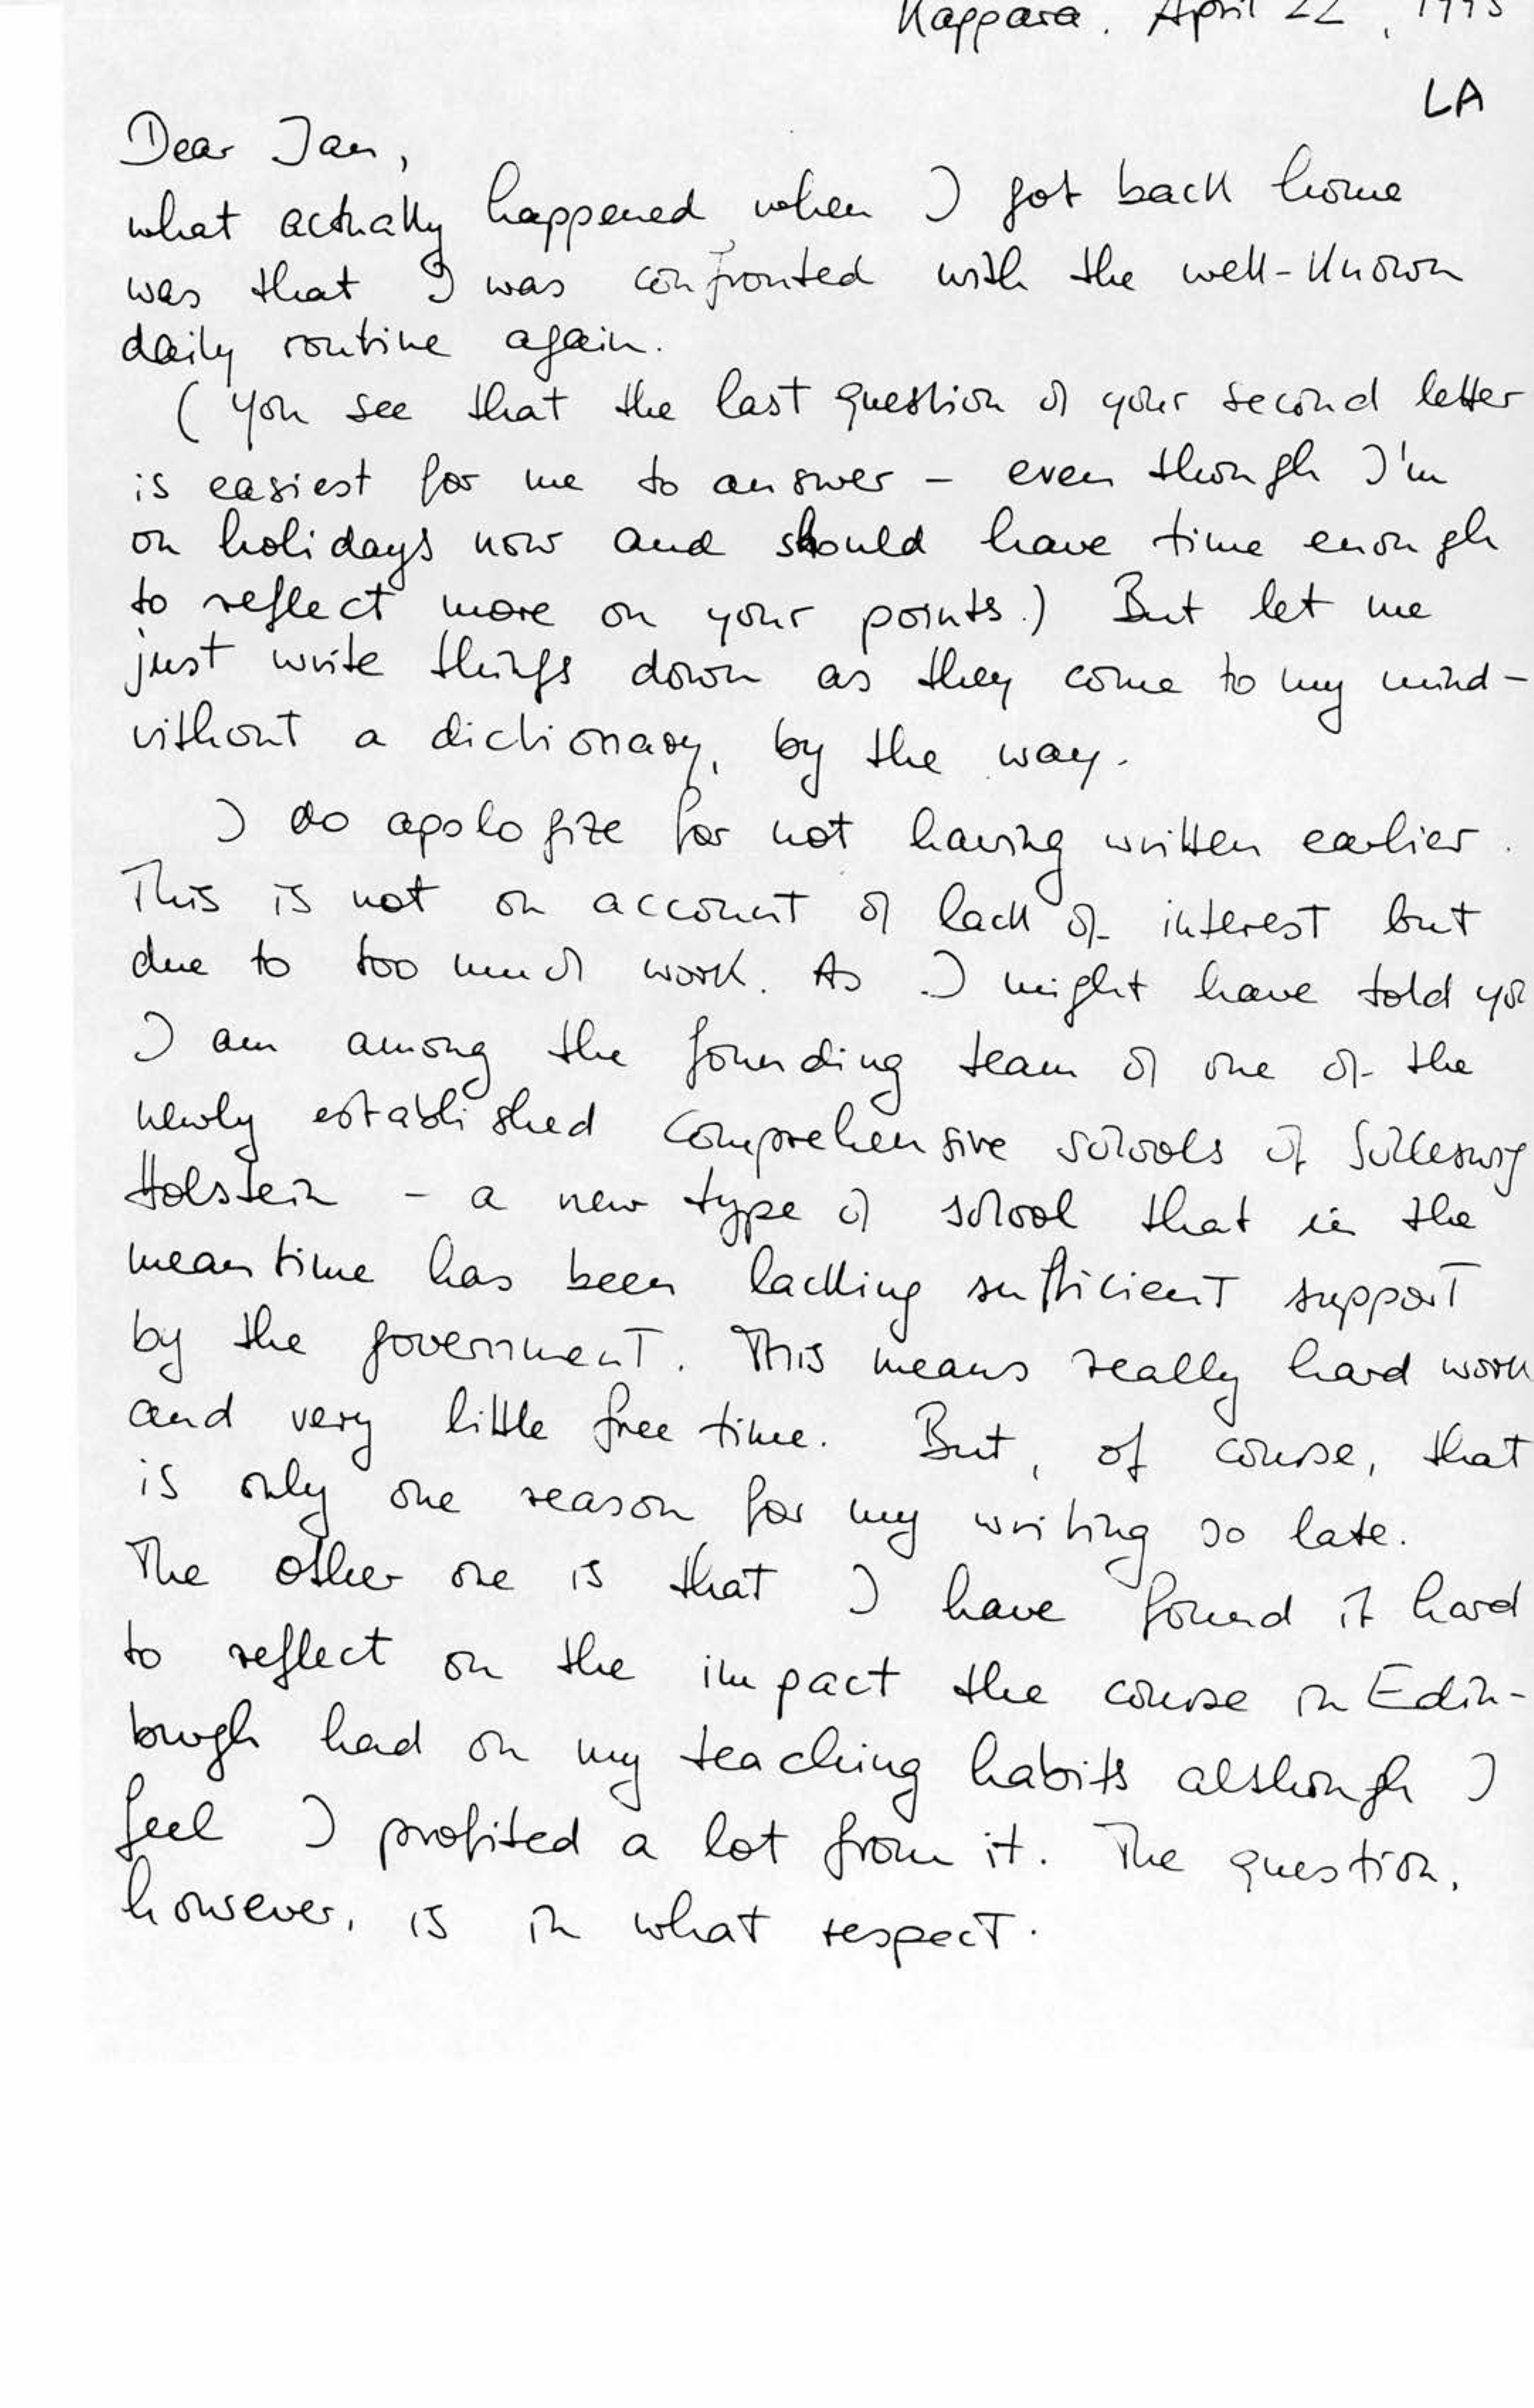 Kappara. April 22, 1993
LA
Dear Ian,
what actually happened when I got back home
was that I was confronted with the well-known
daily routine again.
(you see that the last question of your second letter
is easiest for me to answer - even though I'm
on holidays now and should have time enough
to reflect more on your points.) But let me
just write things down as they come to my mind -
without a dictionary, by the way.
I do apologize for not having written earlier.
This is not on account of lack of interest but
due to too much work. As I might have told you
I am among the founding team of one of the
newly established comprehensive schools of Schleswig
Holstein - a new type of school that in the
meantime has been lacking sufficient support
by the government. This means really hard work
and very little free time. But, of course, that
is only one reason for my writing so late.
The other one is that I have found it hard
to reflect on the impact the course in Edin-
burgh had on my teaching habits although I
feel I profited a lot from it. The question,
however, is in what respect.